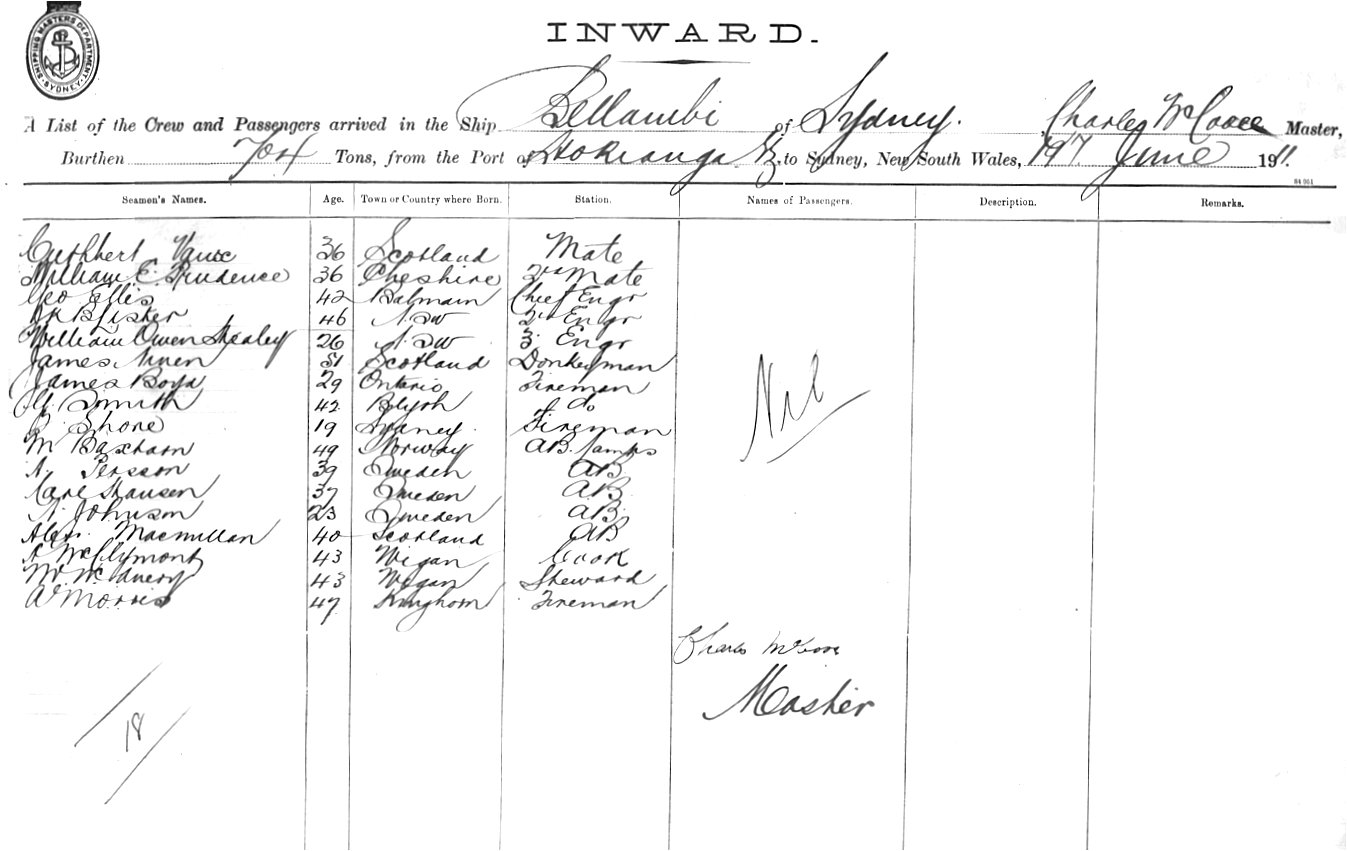 SHIPPING MASTERS DEPARTMENT. SYDNEY.
INWARD.
A List of the Crew and Passengers arrived in the Ship Bellambi of Sydney. Charles Master,
Burthen Tons, from the Port of Hokianga to Sydney, New South Wales, 19 June 1911.
84 901
Seamen's Names. Age. Town or Country where Born. Station. Names of Passengers. Description. Remarks.
Cuthbert Vaux 36 Scotland Mate
William E. Prudence 36 Cheshire 2nd Mate
Geo Ellis 42 Balmain Chief Engr
46 NSW 2nd Engr
William Owen Shealey 26 NSW 3. Engr
James 51 Scotland Donkeyman
James Boyd 29 Ontario Fireman
Smith 42 Blyth do
Shore 19 Sydney. Fireman
M 49 Norway AB. Lamps
A. Persson 39 Sweden AB
Carl Hansen 37 Sweden AB
A Johnson 23 Sweden AB
Alex. Macmillan 40 Scotland AB
A McClymont 43 Wigan Cook
W. 43 Wigan Steward
A Morris 47 Kinghorn Fireman
Nil
Charles
Master
18